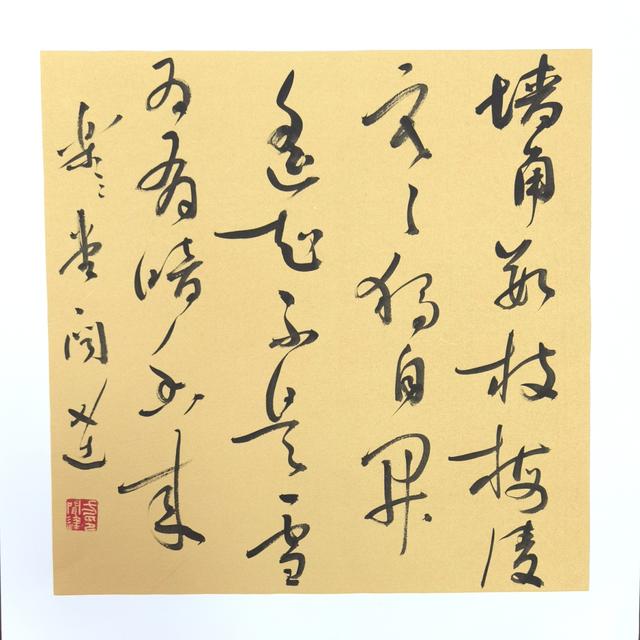 墙角数枝梅凌
寒独自开
遥知不是雪
为有暗香来
堂闫